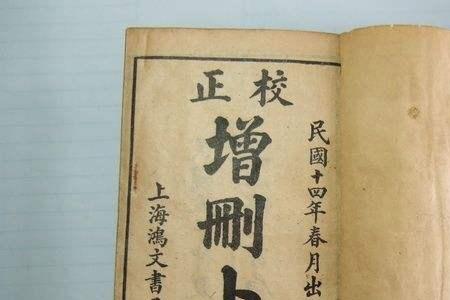 校正
民國十四年春月出
增刪卜
上海鴻文書